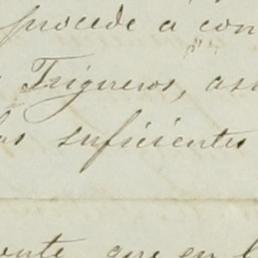 procede a con
Trigueros, as
las suficientes
ente que en l